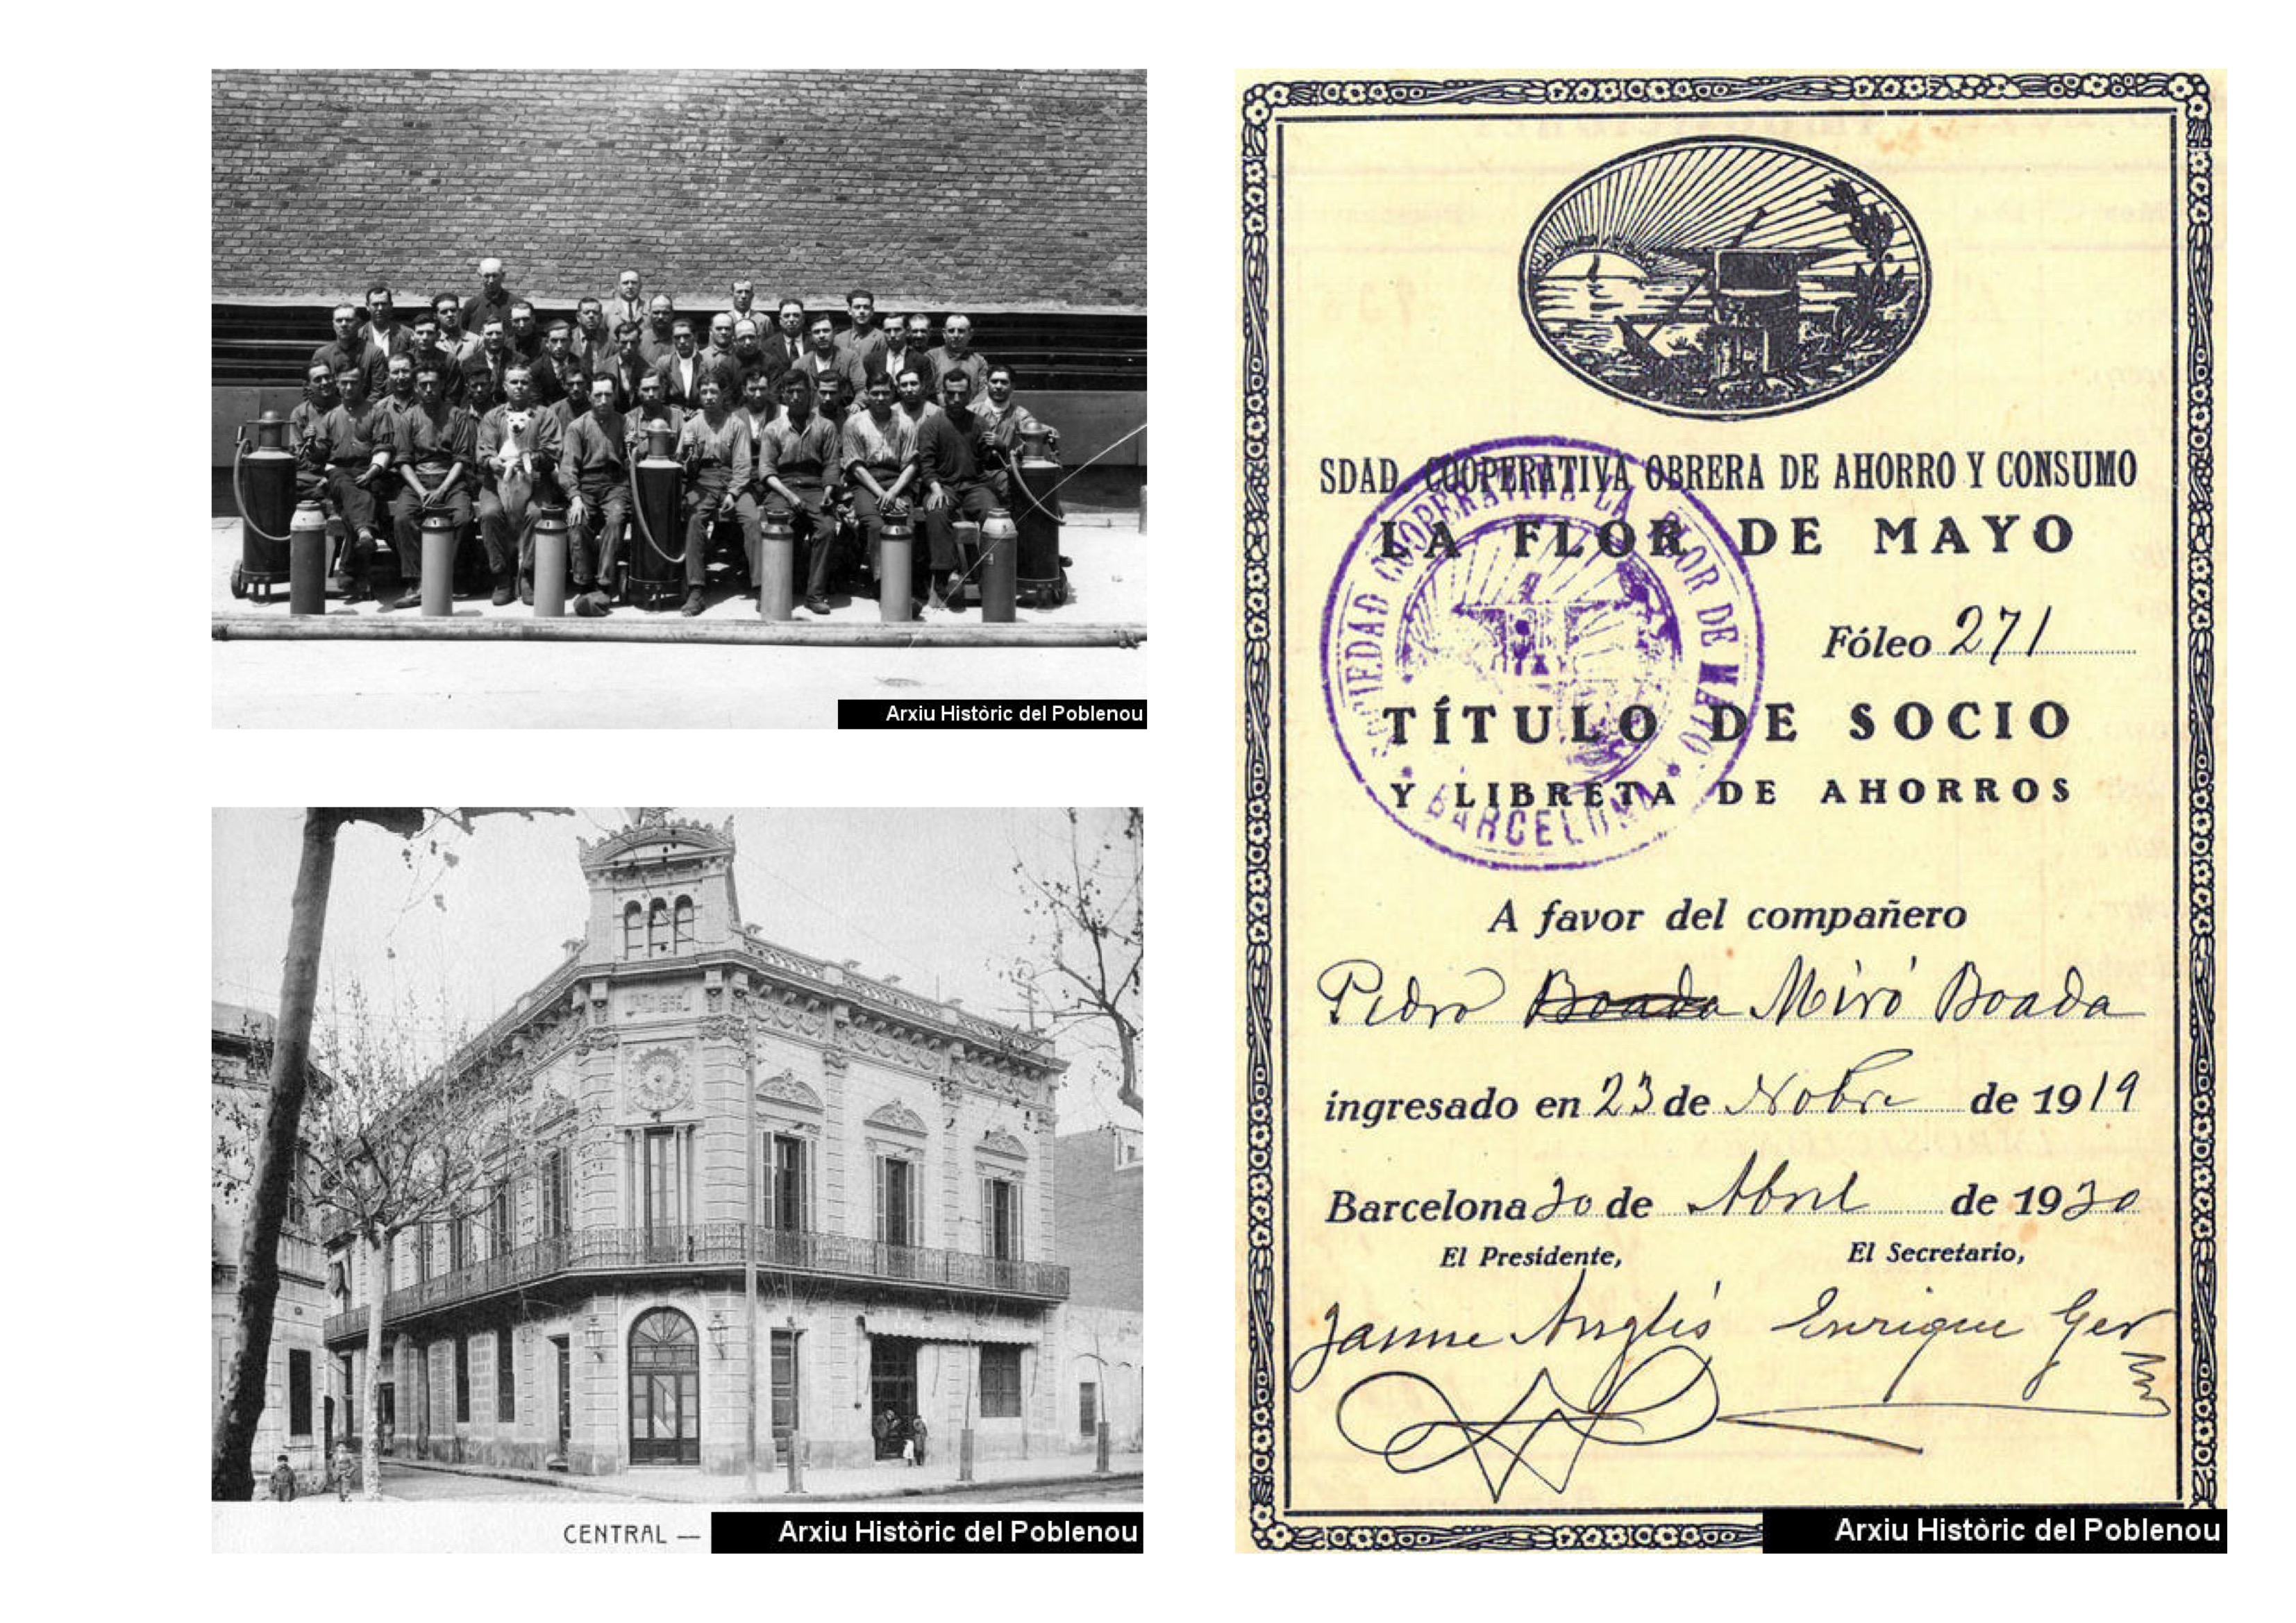 Arxiu Històric del Poblenou
CENTRAL —
Arxiu Històric del Poblenou
SDAD. COOPERATIVA OBRERA DE AHORRO Y CONSUMO
LA FLOR DE MAYO
Fóleo 271
TÍTULO DE SOCIO
Y LIBRETA DE AHORROS
SOCIEDAD COOPERATIVA LA FLOR DE MAYO
BARCELONA
A favor del compañero
Pedro Boada Miró Boada
ingresado en 23 de Nobre de 1919
Barcelona 30 de Abril de 1930
El Presidente, El Secretario,
Jaume Anglés Enrique Ger
Arxiu Històric del Poblenou